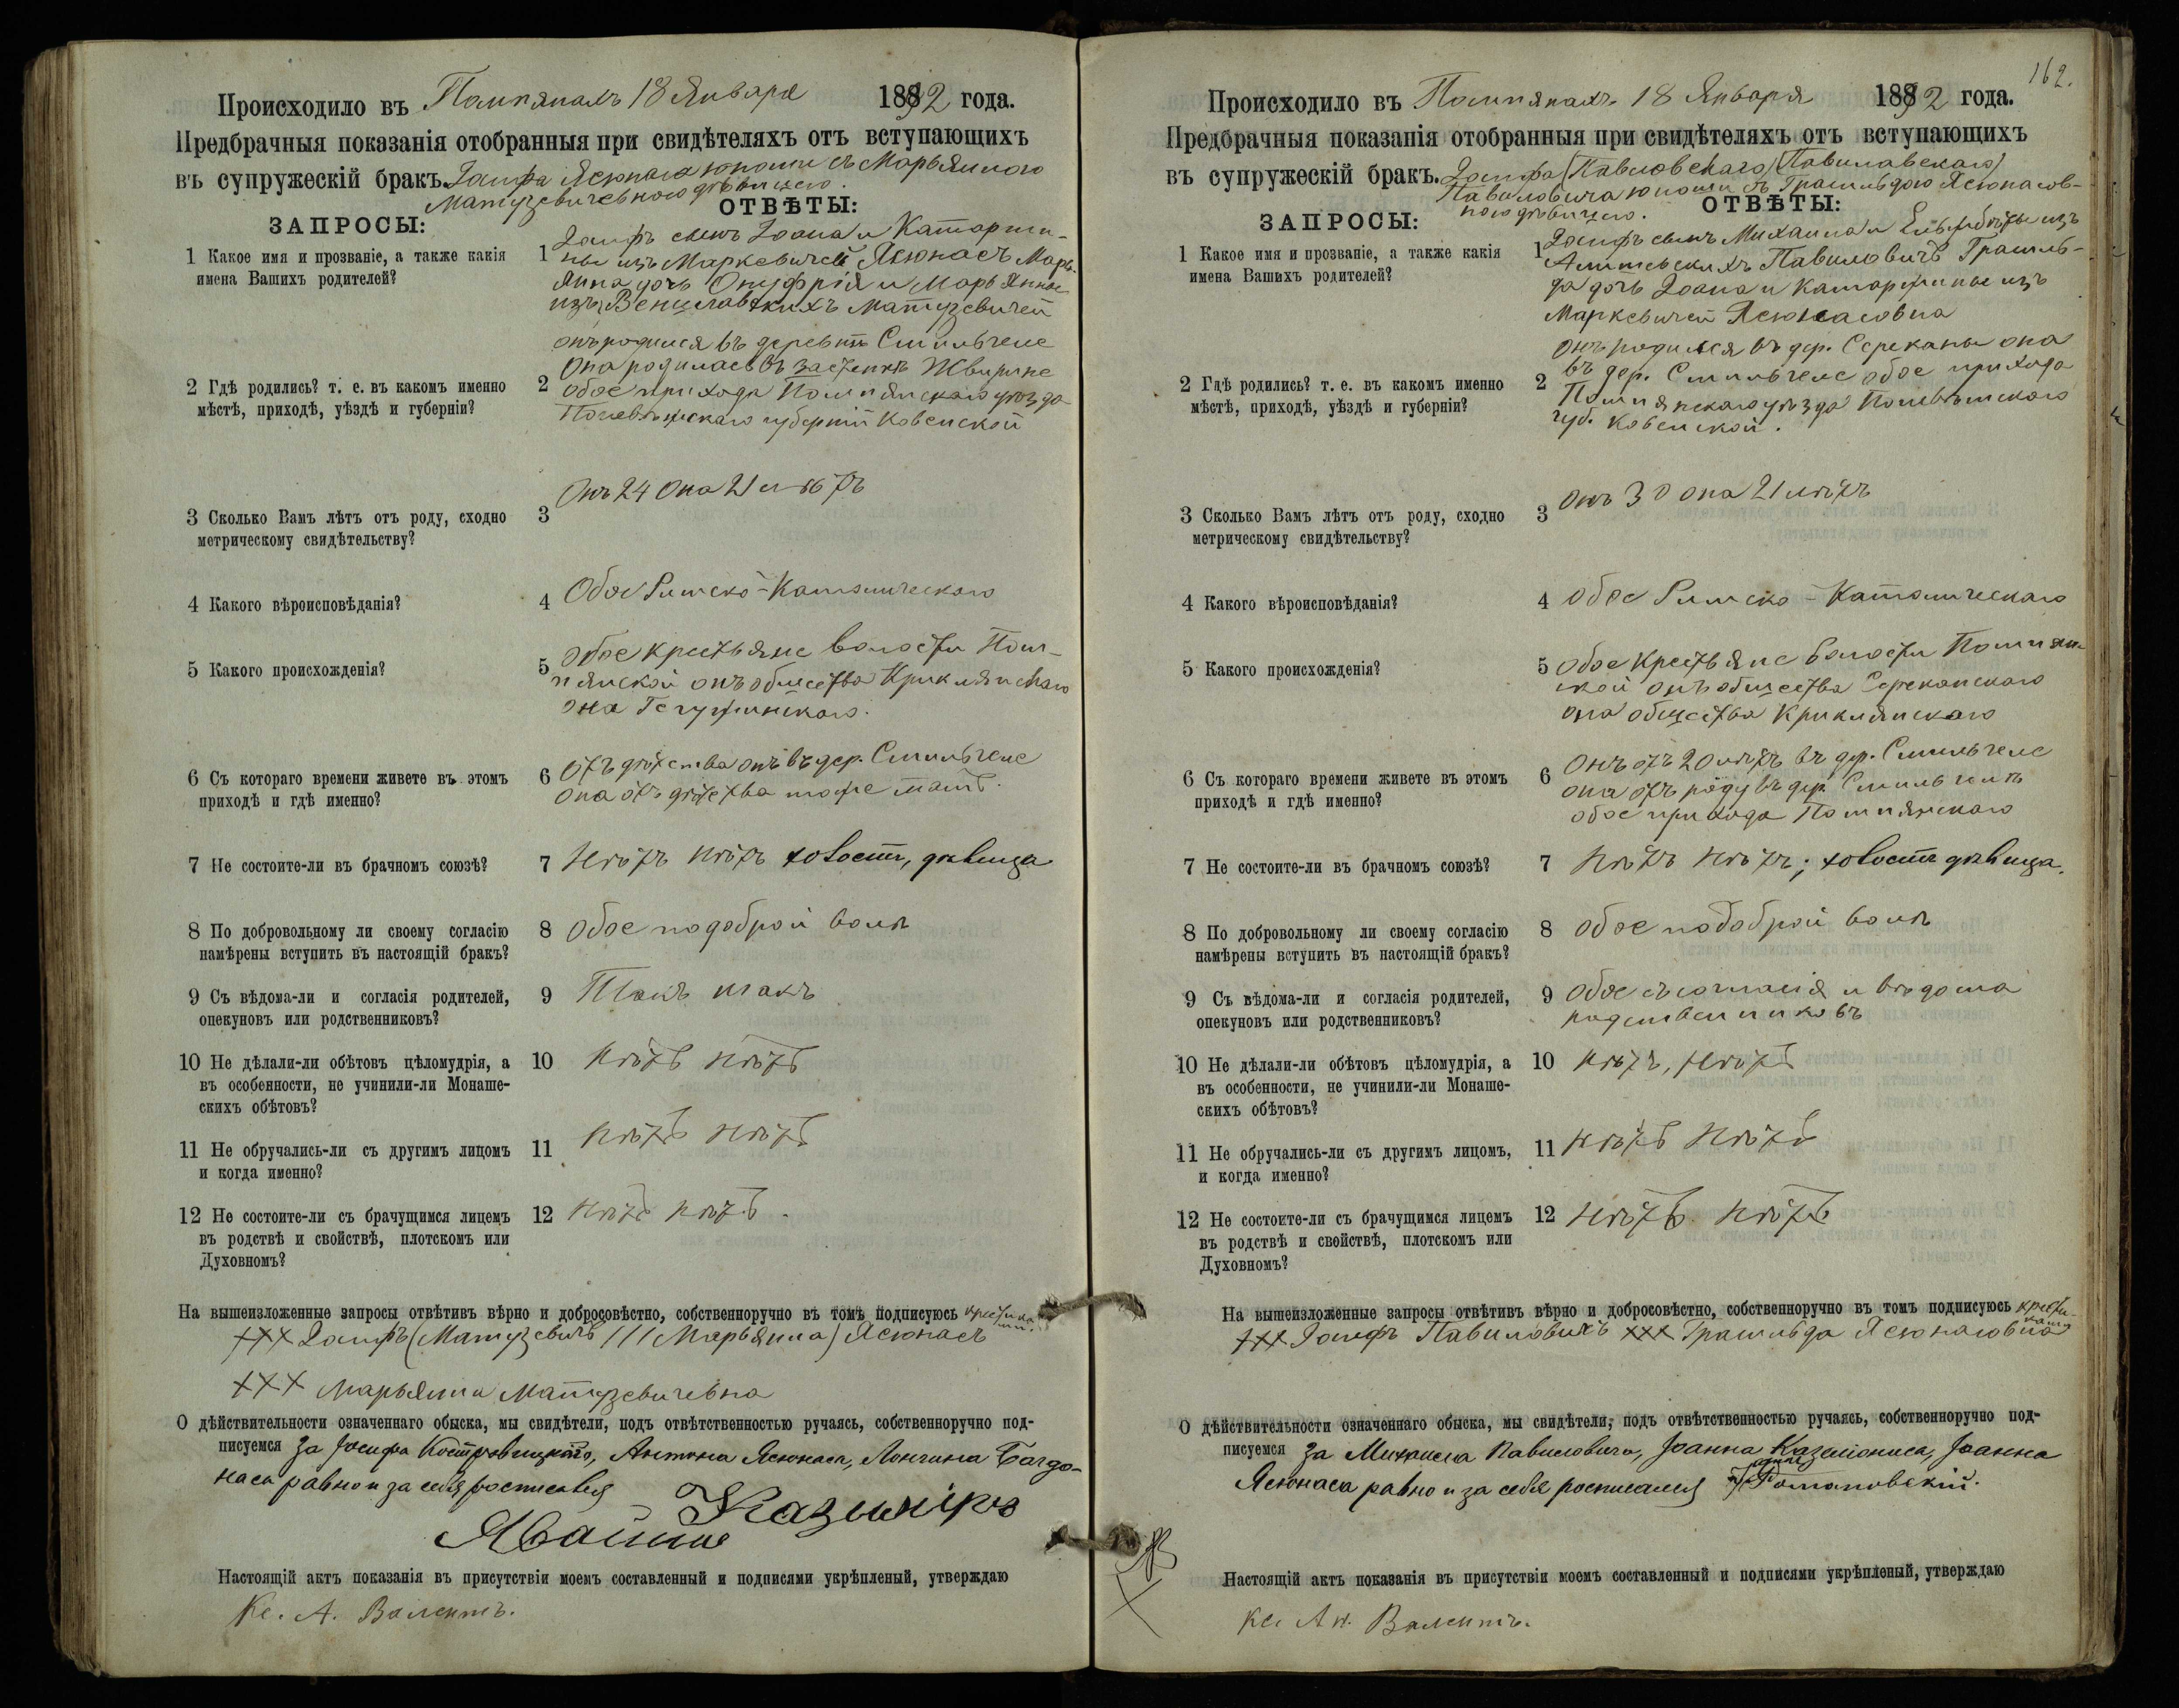 Происходило въ Помпянахъ 18 Января 1892 года.
Предбрачныя показанія отобранныя при свидѣтеляхъ отъ вступающихъ
въ супружескій бракъ. Іосифа Ясюнаса юноши съ Марьянною
Матузевичевною дѣвицею.
ЗАПРОСЫ: ОТВѢТЫ:
1 Какое имя и прозваніе, а также какія
имена Вашихъ родителей?
1 Іосифъ сынъ Іоана и Катаржи-
ны изъ Маркевичей Ясюнасъ Марь-
янна дочь Онуфрія и Марьянны
изъ Венцлавскихъ Матузевичей
2 Гдѣ родились? т. е. въ какомъ именно
мѣстѣ, приходѣ, уѣздѣ и губерніи?
онъ родился въ деревнѣ Смильгеле
она родилась въ застенкѣ
2 обое прихода Помпянскаго уѣзда
Поневѣжскаго губерніи Ковенской
3 Сколько Вамъ лѣтъ отъ роду, сходно
метрическому свидѣтельству?
3 Онъ 24 Она 21 лѣтъ
4 Какого вѣроисповѣданія?
4 Обое Римско-Католическаго
5 Какого происхожденія?
5 Обое крестьяне волости Пом-
пянской онъ общества Криклянскаго
она
6 Съ котораго времени живете въ этомъ
приходѣ и гдѣ именно?
6 Отъ дѣтства онъ въ дер. Смильгеле
она отъ дѣтства тоже тамъ.
7 Не состоите-ли въ брачномъ союзѣ?
7 Нѣтъ нѣтъ холостъ, дѣвица
8 По добровольному ли своему согласію
намѣрены вступить въ настоящій бракъ?
8 Обое по доброй волѣ
9 Съ вѣдома-ли и согласія родителей,
опекуновъ или родственниковъ?
9 Такъ такъ
10 Не дѣлали-ли обѣтовъ цѣломудрія, а
въ особенности, не учинили-ли Монаше-
скихъ обѣтовъ?
10 Нѣтъ нѣтъ
11 Не обручались-ли съ другимъ лицомъ
и когда именно?
11 Нѣтъ нѣтъ
12 Не состоите-ли съ брачущимся лицемъ
въ родствѣ и свойствѣ, плотскомъ или
Духовномъ?
12 Нѣтъ нѣтъ.
На вышеизложенные запросы отвѣтивъ вѣрно и добросовѣстно, собственноручно въ томъ подписуюсь крестика-
ми.
+++ Іосифъ (Матузевичъ /// Марьянна) Ясюнасъ
+++ Марьянна Матузевичевна
О дѣйствительности означеннаго обыска, мы свидѣтели, подъ отвѣтственностью ручаясь, собственноручно под-
писуемся За Іосифа Костровицкаго, Антона Ясюнаса, Лонгина
равно и за себя росписался
Казимиръ
Настоящій актъ показанія въ присутствіи моемъ составленный и подписями укрѣпленый, утверждаю
Кс. А. Валентъ.
162.
Происходило въ Помпянахъ 18 Января 1892 года.
Предбрачныя показанія отобранныя при свидѣтеляхъ отъ вступающихъ
въ супружескій бракъ. Іосифа (Павловскаго) (Павилавскаго)
Павиловича юноши съ Грасильдою Ясюнасов-
ною дѣвицею.
ЗАПРОСЫ: ОТВѢТЫ:
1 Какое имя и прозваніе, а также какія
имена Вашихъ родителей?
1 Іосифъ сынъ Михаила и Ельжбѣты изъ
Павиловичъ Грасиль-
да дочь Іоана и Катаржины изъ
Маркевичей Ясюнасовна
2 Гдѣ родились? т. е. въ какомъ именно
мѣстѣ, приходѣ, уѣздѣ и губерніи?
онъ родился въ дер. Сереканы она
2 въ дер. Смильгеле обое прихода
Помпянскаго уѣзда Поневѣжскаго
губ. Ковенской.
3 Сколько Вамъ лѣтъ отъ роду, сходно
метрическому свидѣтельству?
3 Онъ 30 она 21 лѣтъ
4 Какого вѣроисповѣданія?
4 Обое Римско-Католическаго
5 Какого происхожденія?
5 Обое крестьяне волости Помпян-
ской онъ общества Сереканскаго
она общества Криклянскаго
6 Съ котораго времени живете въ этомъ
приходѣ и гдѣ именно?
6 Онъ отъ 20 лѣтъ въ дер. Смильгеле
она отъ роду въ дер. Смильгелѣ
обое прихода Помпянскаго
7 Не состоите-ли въ брачномъ союзѣ?
7 Нѣтъ нѣтъ; холостъ дѣвица.
8 По добровольному ли своему согласію
намѣрены вступить въ настоящій бракъ?
8 Обое по доброй волѣ
9 Съ вѣдома-ли и согласія родителей,
опекуновъ или родственниковъ?
9 Обое съ согласія и вѣдома
родственниковъ
10 Не дѣлали-ли обѣтовъ цѣломудрія, а
въ особенности, не учинили-ли Монаше-
скихъ обѣтовъ?
10 Нѣтъ, нѣтъ
11 Не обручались-ли съ другимъ лицомъ,
и когда именно?
11 Нѣтъ нѣтъ
12 Не состоите-ли съ брачущимся лицемъ
въ родствѣ и свойствѣ, плотскомъ или
Духовномъ?
12 Нѣтъ. Нѣтъ
На вышеизложенные запросы отвѣтивъ вѣрно и добросовѣстно, собственноручно въ томъ подписуюсь крести-
ками
+++ Іосифъ Павиловичъ +++ Грасильда Ясюнасовна
О дѣйствительности означеннаго обыска, мы свидѣтели, подъ отвѣтственностью ручаясь, собственноручно под-
писуемся За Михаила Павиловича, Іоанна Іоанна
Ясюнаса равно и за себя росписался Романовскій.
Настоящій актъ показанія въ присутствіи моемъ составленный и подписями укрѣпленый, утверждаю
Кс. Ан. Валентъ.